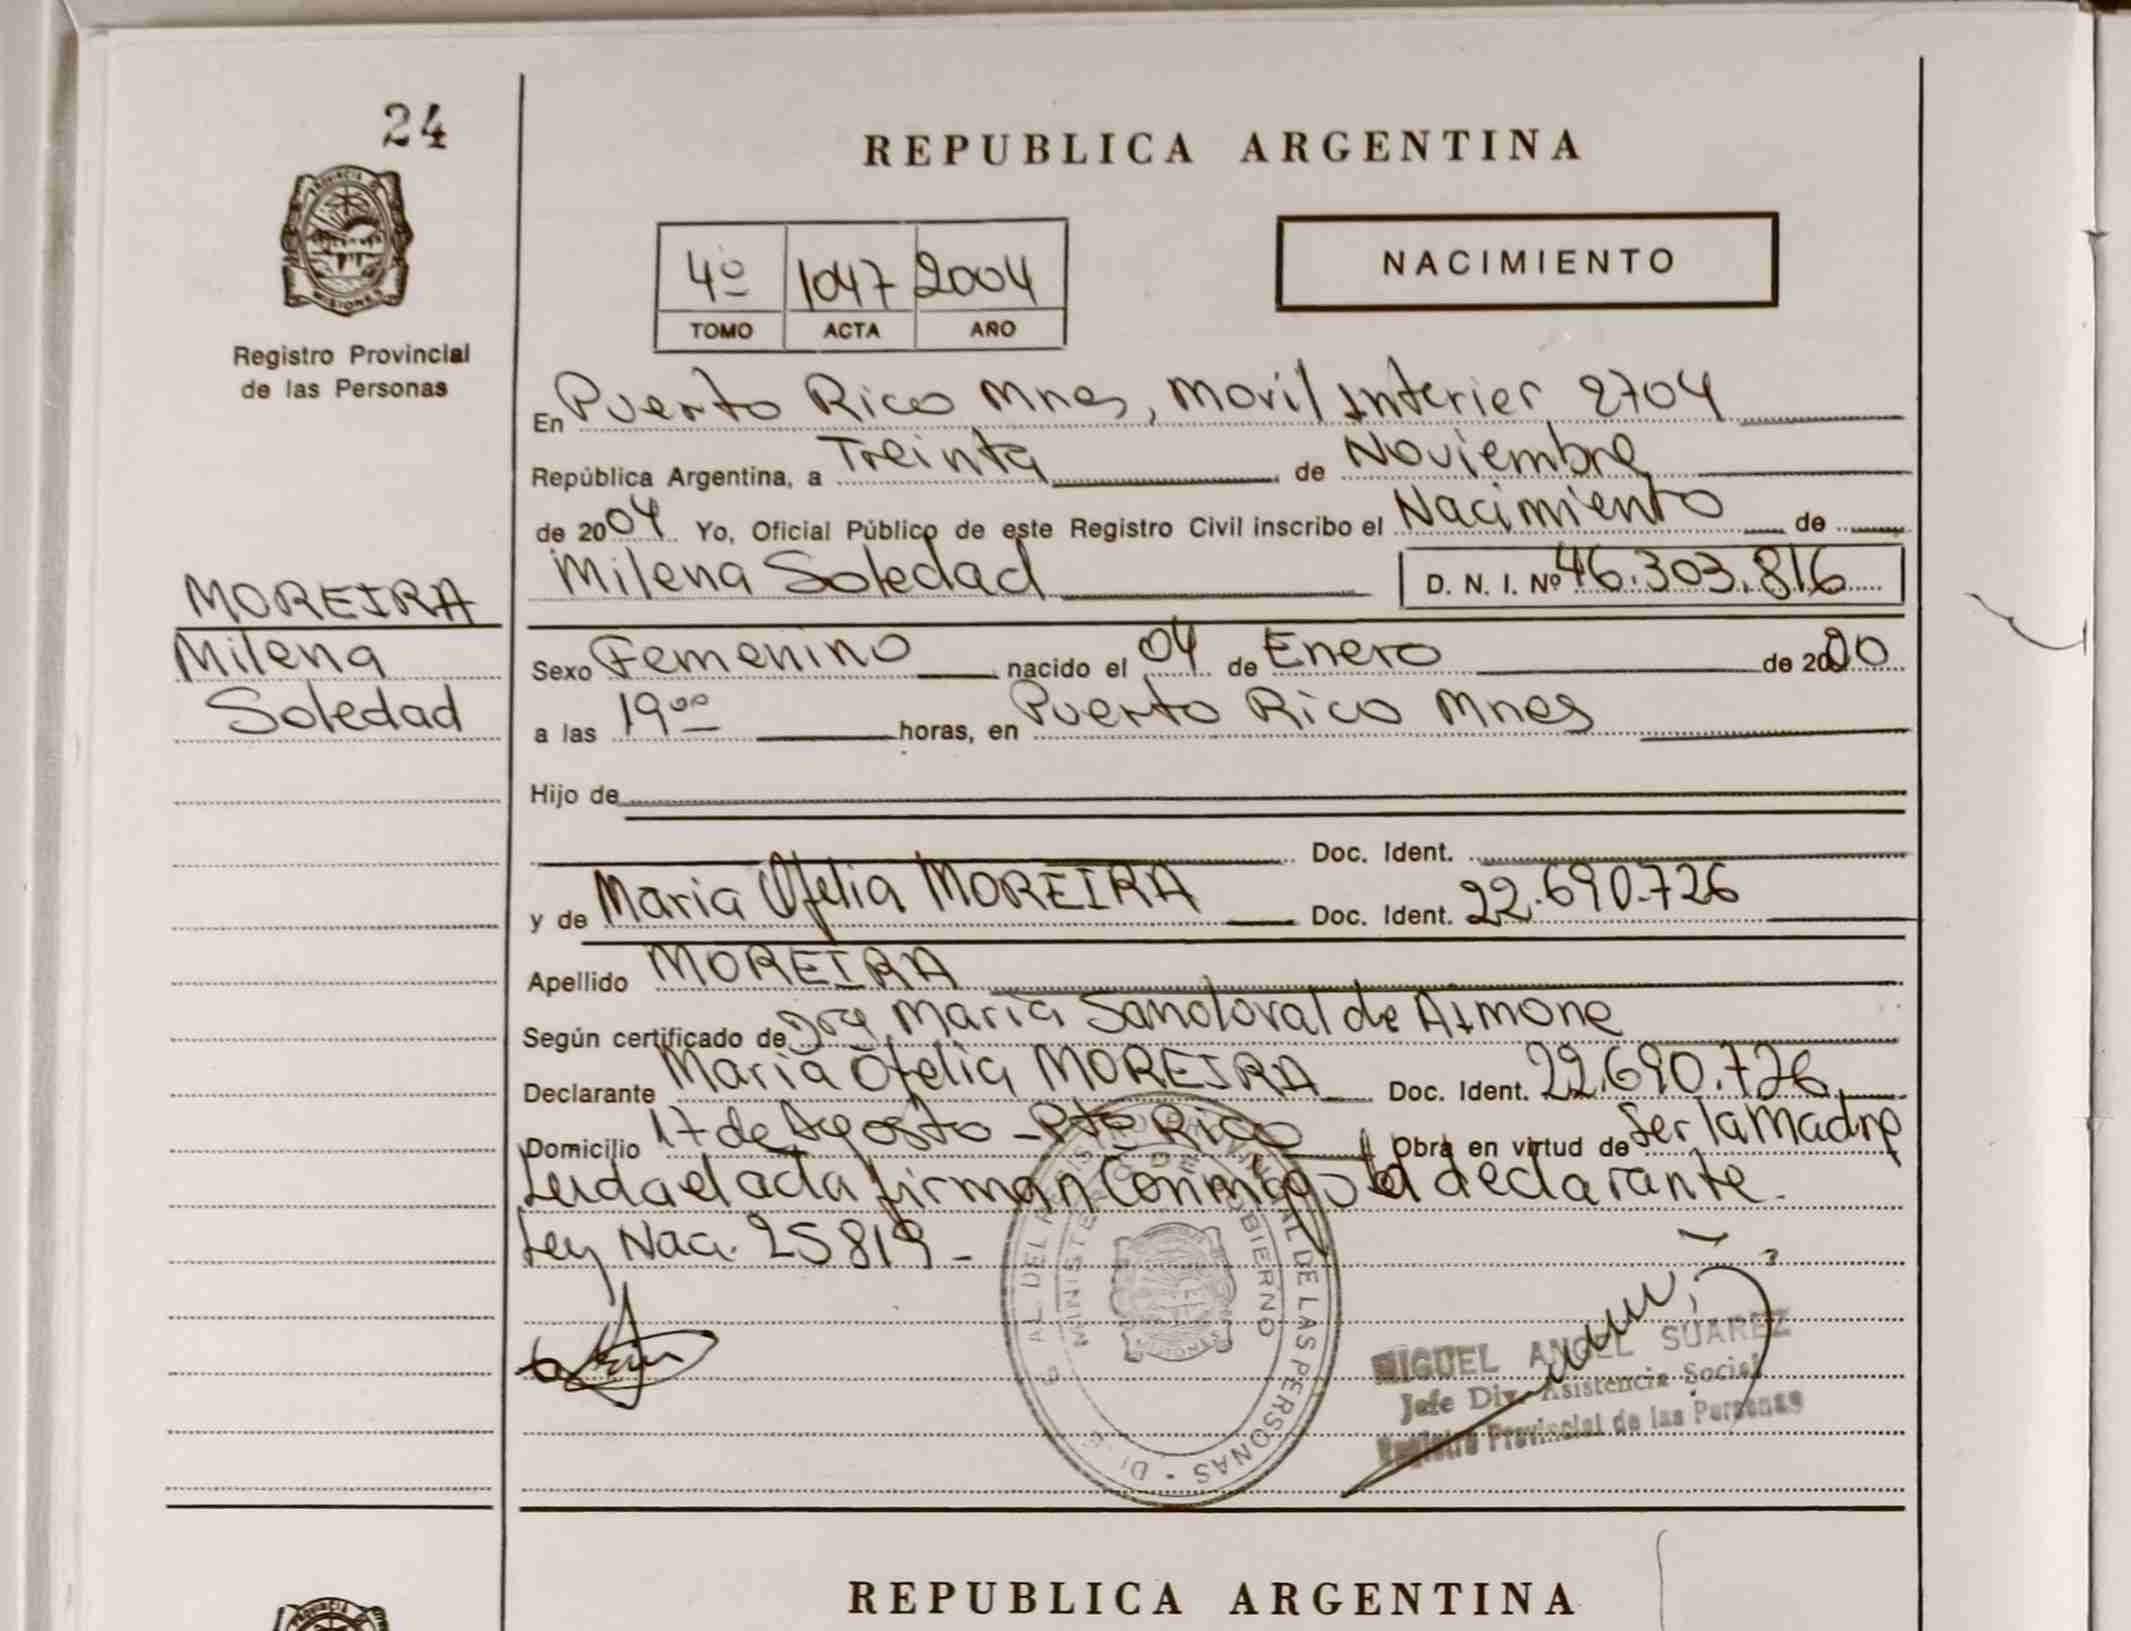 24
PROVINCIA D
MISIONES
Registro Provincial
de las Personas
MOREIRA
Milena
Soledad
REPUBLICA ARGENTINA
4º 1047 2004
TOMO ACTA AÑO
NACIMIENTO
En Puerto Rico Mnes, Movil Interior 2704
República Argentina, a Treinta de Noviembre
de 2004 Yo, Oficial Público de este Registro Civil inscribo el Nacimiento de
Milena Soledad D. N. I. Nº 46.303.816
Sexo Femenino nacido el 04 de Enero de 2000
a las 19⁰⁰ horas, en Puerto Rico Mnes
Hijo de
Doc. Ident.
y de Maria Ofelia MOREIRA Doc. Ident. 22.690.726
Apellido MOREIRA
Según certificado de Maria Sandoval de Aimone
Declarante Maria Ofelia MOREIRA Doc. Ident. 22.690.726
Domicilio 17 de Agosto - Pto Rico Obra en virtud de Ser la Madre
Leida el acta firman Conmigo la declarante.
Ley Nac. 25819 -
MINISTERIO DE GOBIERNO
AL DE LAS PERSONAS
MISIONES
MIGUEL ANGEL SUAREZ
Jefe Div. Asistencia Social
Registro Provincial de las Personas
REPUBLICA ARGENTINA